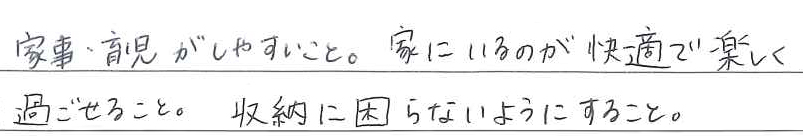 家事・育児がしやすいこと。家にいるのが快適で楽しく
過ごせること。 収納に困らないようにすること。